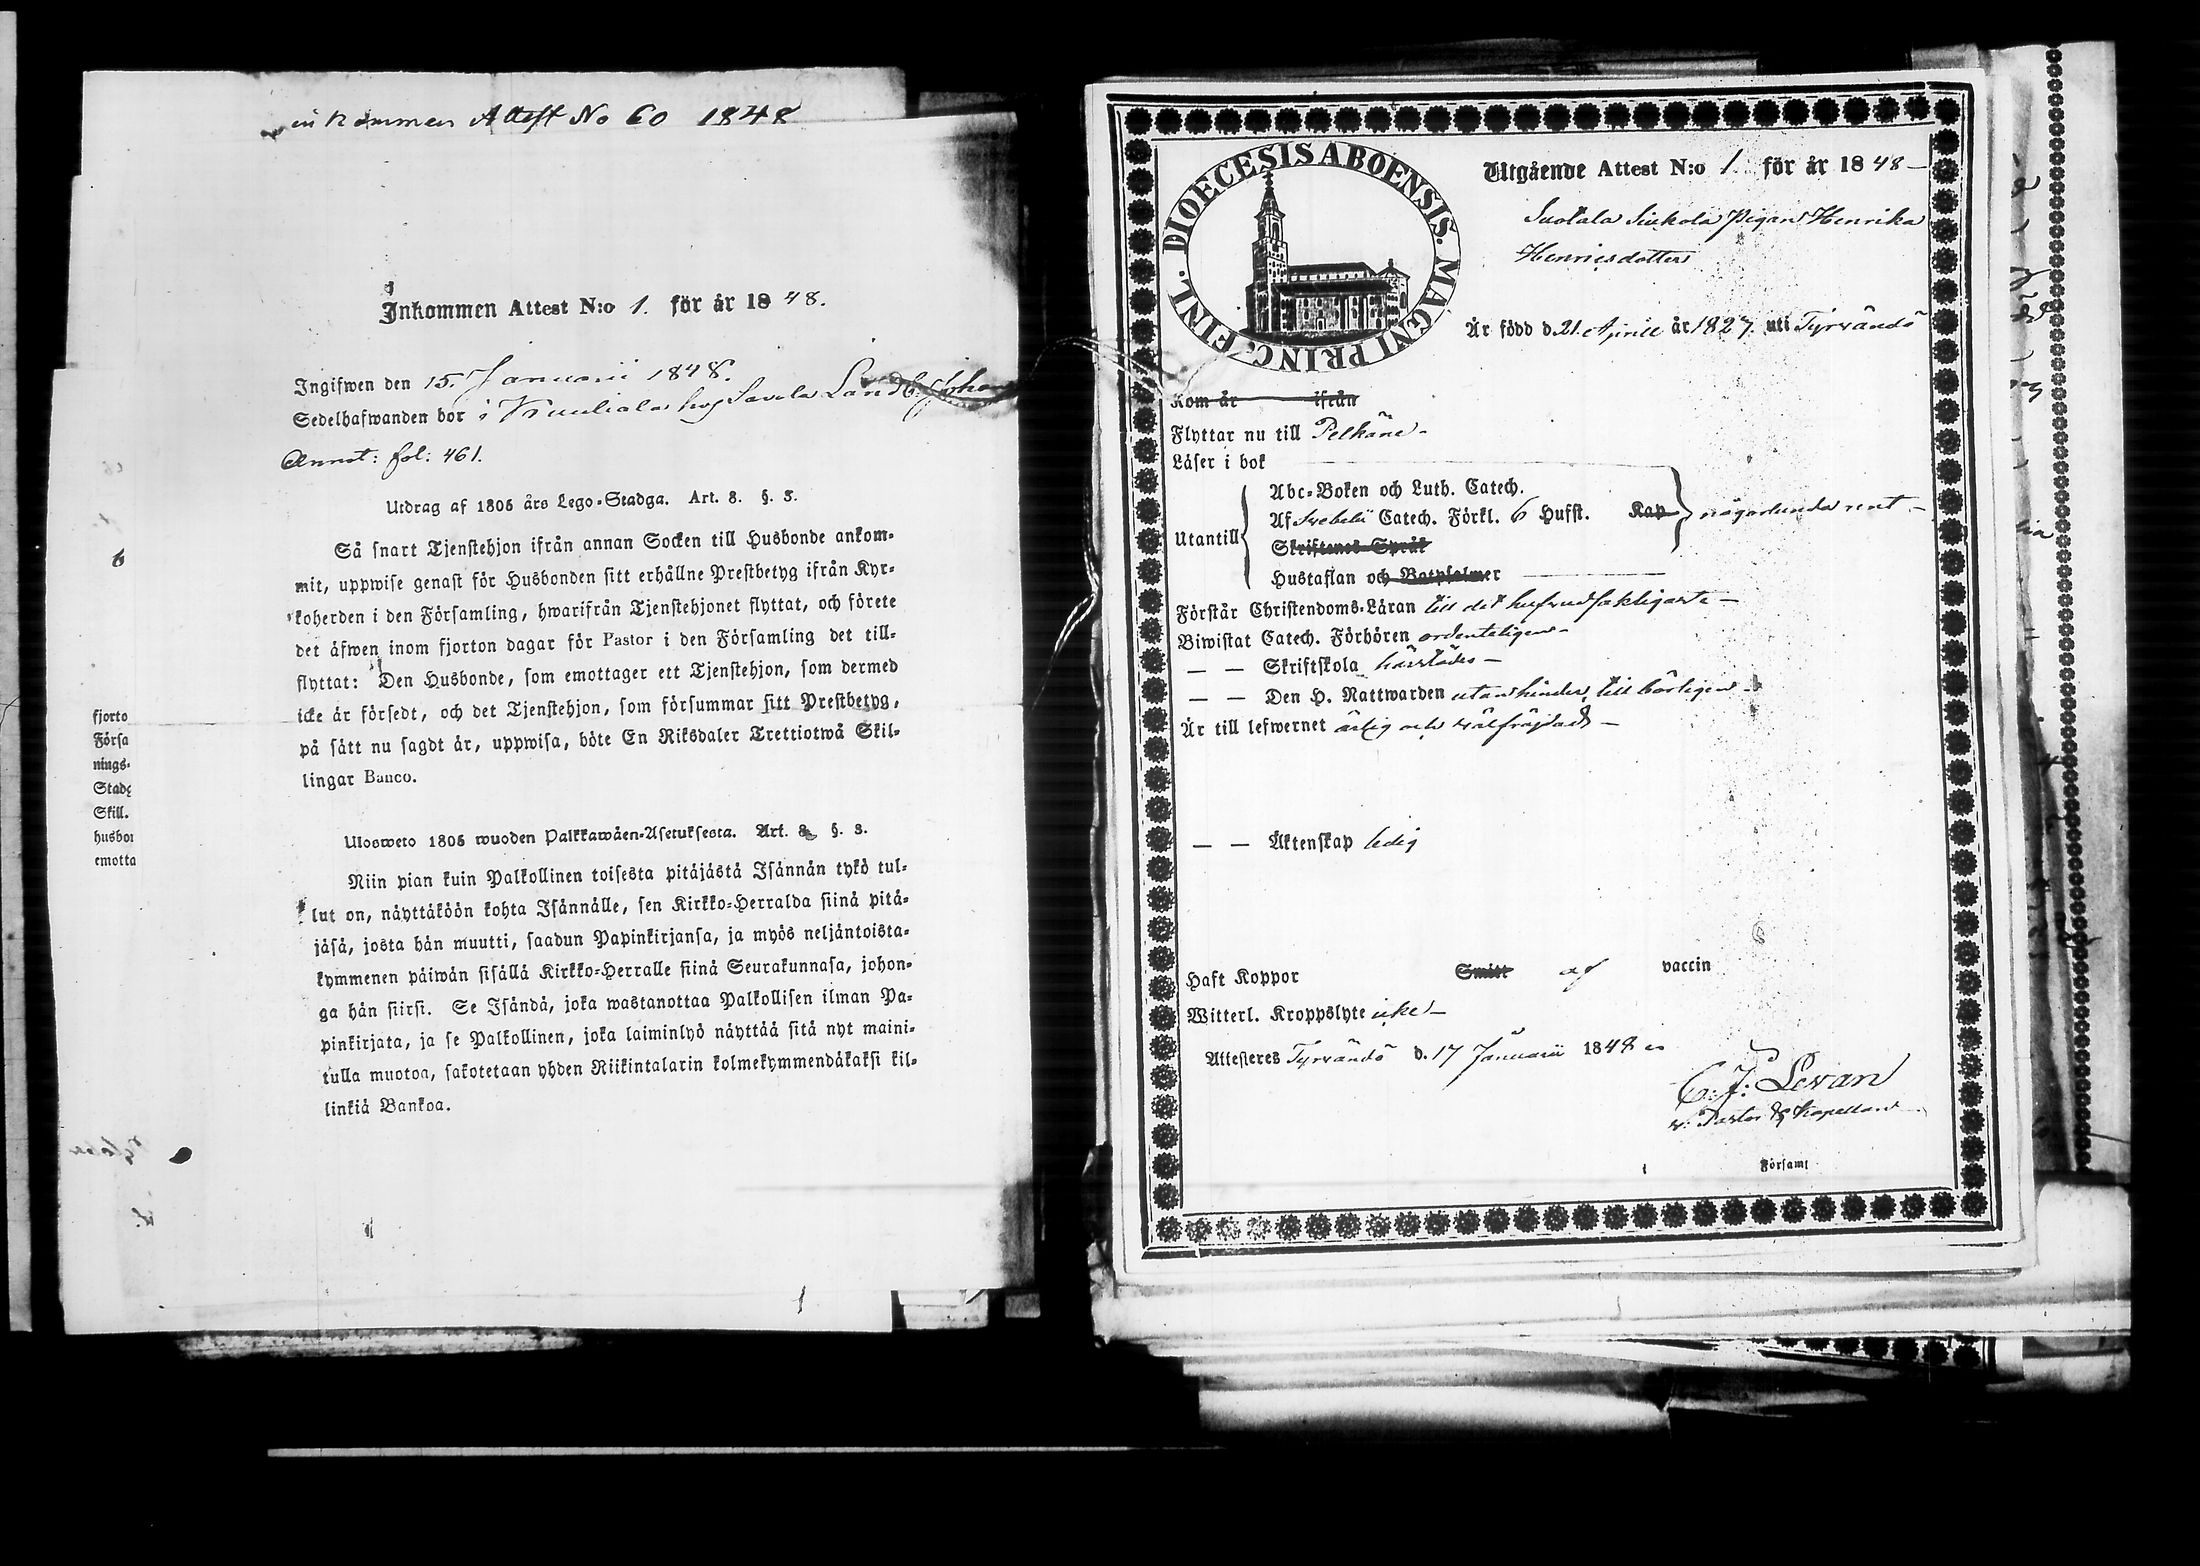 inkommen Attest No 60 1848
Inkommen Attest N:o 1. för år 1848.
Ingifwen den 15. Januarii 1848.
Sedelhafwanden bor i hos Savela Landb.
Annot: fol: 461.
Utdrag af 1805 års Lego-Stadga. Art. 8. §. 3.
Så snart Tjenstehjon ifrån annan Socken till Husbonde ankom-
mit, uppwise genast för Husbonden sitt erhållne Prestbetyg ifrån Kyr-
koherden i den Församling, hwarifrån Tjenstehjonet flyttat, och förete
det äfwen inom fjorton dagar för Pastor i den Församling det till-
flyttat: Den Husbonde, som emottager ett Tjenstehjon, som dermed
icke är försedt, och det Tjenstehjon, som försummar sitt Prestbetyg,
på sätt nu sagdt är, uppwisa, böte En Riksdaler Trettiotwå Skil-
lingar Banco.
Ulosweto 1805 wuoden Palkkawäen-Asetuksesta. Art. 8 §. 3.
Niin pian kuin Palkollinen toisesta pitäjästä Isännän tykö tul-
lut on, näyttäköön kohta Isännälle, sen Kirkko-Herralda siinä pitä-
jäsä, josta hän muutti, saadun Papinkirjansa, ja myös neljäntoista-
kymmenen päiwän sisällä Kirkko-Herralle siinä Seurakunnasa, johon-
ga hän siirsi. Se Isändä, joka wastanottaa Palkollisen ilman Pa-
pinkirjata, ja se Palkollinen, joka laiminlyö näyttää sitä nyt maini-
tulla muotoa, sakotetaan yhden Riikintalarin kolmekymmendäkaksi kil-
linkiä Bankoa.
fjorto
Församl
nings-
Stadg
Skill.
husbon
emotta
DIOECESIS ABOENSIS. MAGNI PRINC. FINL.
Utgående Attest N:o 1 för år 1848
Suotala Siukola Pigan Henrika
Henricsdotter
Är född d. 21. Aprill år 1827. uti Tyrvändö
Kom år ifrån
Flyttar nu till Pelkäne
Läser i bok
Utantill
Abc-Boken och Luth. Catech.
Af Svebelii Catech. Förkl. 6 Hufst. Kap någorlunda rent
Skriftenes Språk
Hustaflan och Botpsalmer
Förstår Christendoms-Läran till det hufvudsakligaste
Biwistat Catech. Förhören ordenteligen
— — Skriftskola härstädes
— — Den H. Nattwarden utan hinder tillbörligen
Är till lefwernet ärlig och välfrägdad
— — Äktenskap ledig
Haft Koppor Smitt af vaccin
Witterl. Kroppslyte icke
Attesteres Tyrvändö d. 17 Januarii 1848
C. J. Levan
v. Pastor & Kapellan
Församl